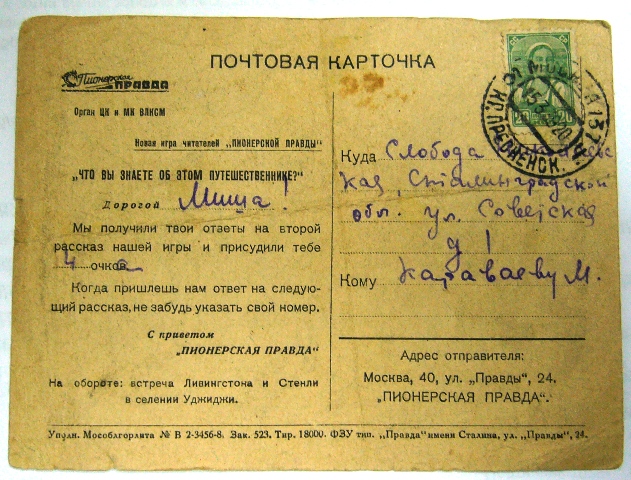 ПОЧТОВАЯ КАРТОЧКА
Пионерская
ПРАВДА
Орган ЦК и МК ВЛКСМ
Новая игра читателей „ПИОНЕРСКОЙ ПРАВДЫ"
„ЧТО ВЫ ЗНАЕТЕ ОБ ЭТОМ ПУТЕШЕСТВЕННИКЕ?"
Дорогой Миша!
Мы получили твои ответы на второй
рассказ нашей игры и присудили тебе
4 очков а
Когда пришлешь нам ответ на следую-
щий рассказ, не забудь указать свой номер.
С приветом
„ПИОНЕРСКАЯ ПРАВДА"
На обороте: встреча Ливингстона и Стенли
в селении Уджиджи.
МОСКВА 137
КР. ПРЕСНЕНСК.
20 20
Куда Слобода
кая, Сталинградской
обл. ул. Советская
д 1
Кому Караваеву М.
Адрес отправителя:
Москва, 40, ул. „Правды", 24.
„ПИОНЕРСКАЯ ПРАВДА".
Уполн. Мособлгорлита № В 2-3456-8. Зак. 523. Тир. 18000. ФЗУ тип. „Правда" имени Сталина, ул. „Правды", 24.